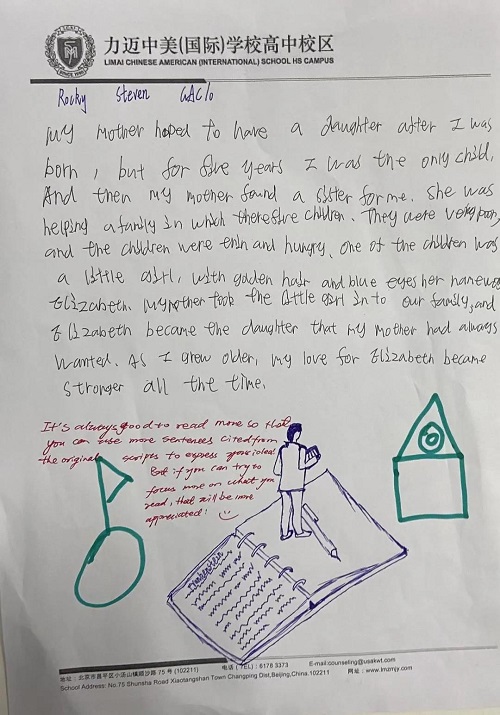 力迈中美(国际)学校高中校区
LIMAI CHINESE AMERICAN (INTERNATIONAL) SCHOOL HS CAMPUS
Rocky Steven GACIO
My mother hoped to have a daughter after I was
born, but for five years I was the only child,
And then my mother found a sister for me. She was
helping a family in which there five children. They were very poor,
and the children were thin and hungry. One of the children was
a little girl, with golden hair and blue eyes her name was
Elizabeth. My mother took the little girl in to our family, and
Elizabeth became the daughter that my mother had always
wanted. As I grew older, my love for Elizabeth became
stronger all the time.
It's always good to read more so that
you can use more sentences cited from
the original scripts to express your ideas.
But if you can try to
focus more on what you
read, that will be more
appreciated!
地址:北京市昌平区小汤山镇顺沙路 75 号 (102211) 电话 (TEL):6178 3373 E-mail:counseling@usakwt.com
School Address: No.75 Shunsha Road Xiaotangshan Town Changping Dist,Beijing,China.102211 网址:www.lmzmjy.com